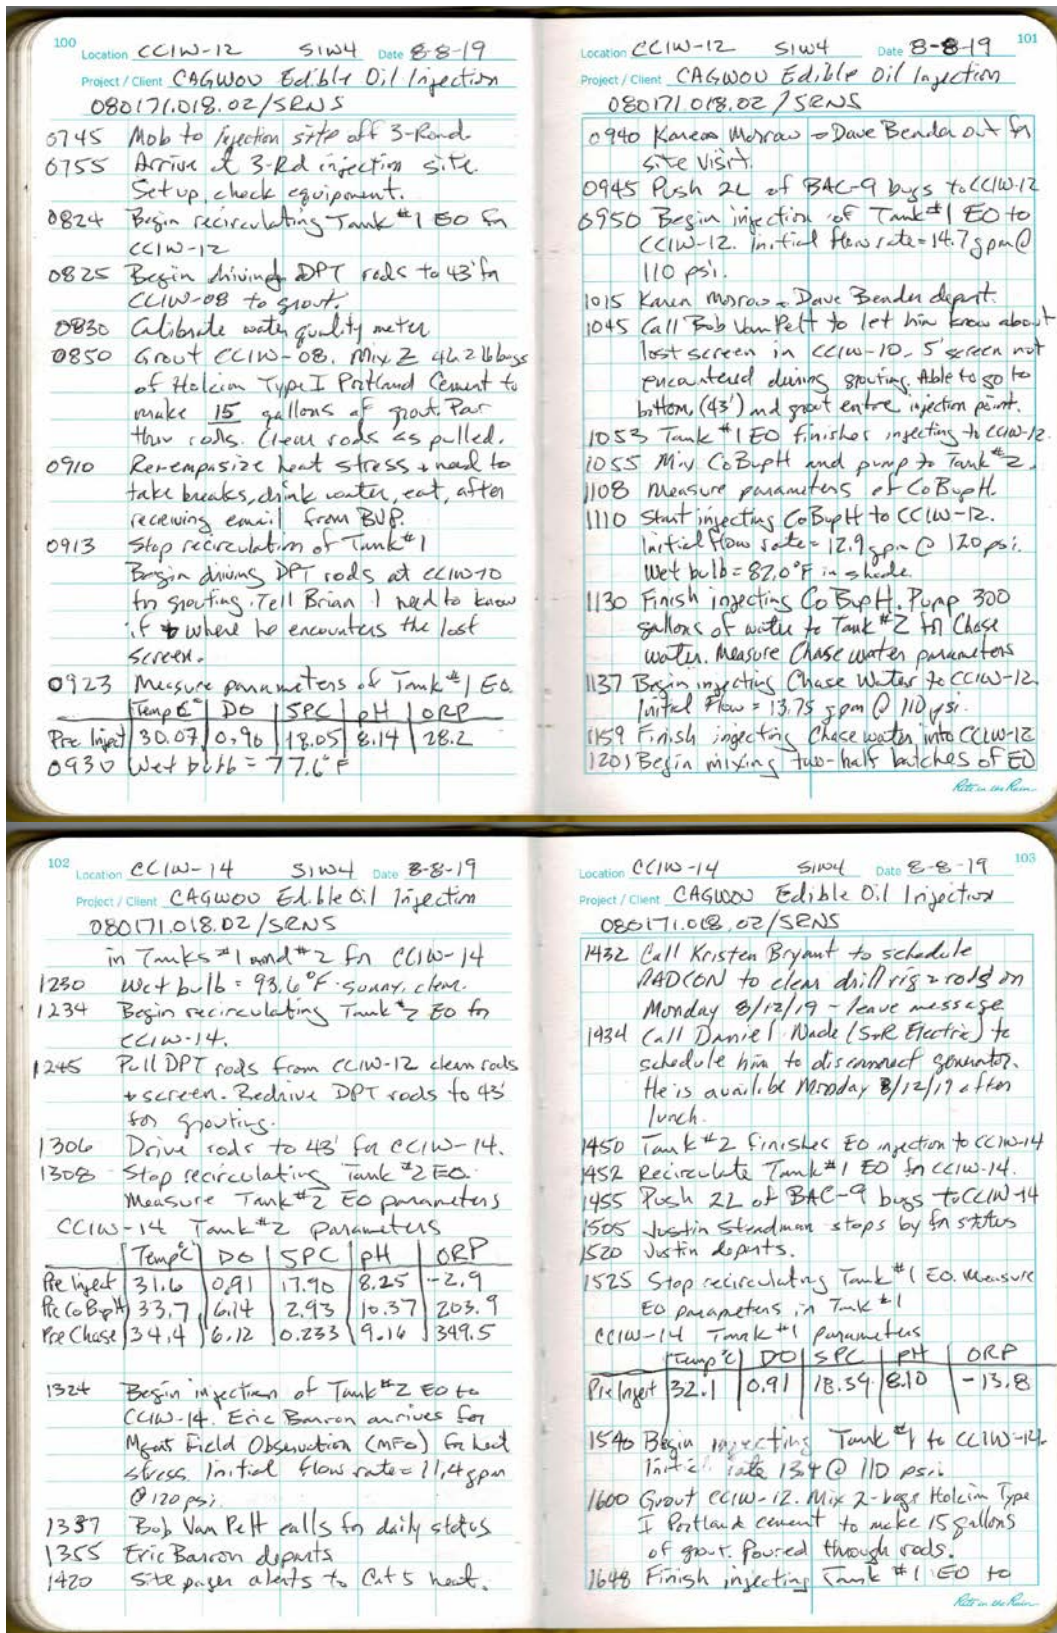 100
Location CCIW-12 SIW4 Date 8-8-19
Project / Client CAGWOU Edible Oil Injection
080171.018.02/SRNS
0745 Mob to injection site off 3-Road.
0755 Arrive at 3-Rd injection site.
Setup, check equipment.
0824 Begin recirculating Tank #1 EO for
CCIW-12
0825 Begin driving DPT rods to 43' for
CCIW-08 to grout.
0830 Calibrate water quality meter
0850 Grout CCIW-08. Mix 2 42.2 lb bags
of Holcim Type I Portland Cement to
make 15 gallons of grout. Pour
thru rods. Clean rods as pulled.
0910 Re-empasize heat stress + need to
take breaks, drink water, eat, after
receiving email from BVP.
0913 Stop recirculation of Tank #1
Begin driving DPT rods at CCIW-10
for grouting. Tell Brian I need to know
if + where he encounters the lost
screen.
0923 Measure parameters of Tank #1 EO.
Temp C° DO SPC pH ORP
Pre Inject 30.07 0.96 18.05 8.14 28.2
0930 Wet bulb = 77.6°F
101
Location CCIW-12 SIW4 Date 8-8-19
Project / Client CAGWOU Edible Oil Injection
080171.018.02/SRNS
0940 Karen Morrow + Dave Bender out for
site visit.
0945 Push 2L of BAC-9 bugs to CCIW-12
0950 Begin injection of Tank #1 EO to
CCIW-12. Initial flow rate = 14.7 gpm @
110 psi.
1015 Karen Morrow + Dave Bender depart.
1045 Call Bob Van Pelt to let him know about
lost screen in CCIW-10. 5' screen not
encountered during grouting. Able to go to
bottom (43') and grout entire injection point.
1053 Tank #1 EO finishes injecting to CCIW-12.
1055 Mix CoBupH and pump to Tank #2.
1108 Measure parameters of CoBupH.
1110 Start injecting CoBupH to CCIW-12.
Initial flow rate = 12.9 gpm @ 120 psi.
Wet bulb = 82.0°F in shade.
1130 Finish injecting CoBupH. Pump 300
gallons of water to Tank #2 for Chase
water. Measure Chase water parameters
1137 Begin injecting Chase Water to CCIW-12.
Initial Flow = 13.75 gpm @ 110 psi.
1159 Finish injecting Chase water into CCIW-12
1201 Begin mixing two-half batches of EO
Rite in the Rain
102
Location CCIW-14 SIW4 Date 8-8-19
Project / Client CAGWOU Edible Oil Injection
080171.018.02/SRNS
in Tanks #1 and #2 for CCIW-14
1230 Wet bulb = 93.6°F. Sunny, clear.
1234 Begin recirculating Tank #2 EO for
CCIW-14.
1245 Pull DPT rods from CCIW-12 clean rods
+ screen. Redrive DPT rods to 43'
for grouting.
1306 Drive rods to 43' for CCIW-14.
1308 Stop recirculating Tank #2 EO.
Measure Tank #2 EO parameters
CCIW-14 Tank #2 parameters
Temp°C DO SPC pH ORP
Pre Inject 31.6 0.91 17.90 8.25 -2.9
Pre CoBupH 33.7 6.14 2.93 10.37 203.9
Pre Chase 34.4 6.12 0.233 9.16 349.5
1324 Begin injection of Tank #2 EO to
CCIW-14. Eric Barron arrives for
Mgmt Field Observation (MFO) for heat
stress. Initial flow rate = 11.4 gpm
@ 120 psi.
1337 Bob Van Pelt calls for daily status
1355 Eric Barron departs
1420 Site pager alerts to Cat 5 heat.
103
Location CCIW-14 SIW4 Date 8-8-19
Project / Client CAGWOU Edible Oil Injection
080171.018.02/SRNS
1432 Call Kristen Bryant to schedule
RADCON to clear drill rig + rods on
Monday 8/12/19 - leave message
1434 Call Daniel Nade (S+R Electric) to
schedule him to disconnect generator.
He is availible Monday 8/12/19 after
lunch.
1450 Tank #2 finishes EO injection to CCIW-14
1452 Recirculate Tank #1 EO for CCIW-14.
1455 Push 2L of BAC-9 bugs to CCIW-14
1505 Justin Steadman stops by for status
1520 Justin departs.
1525 Stop recirculating Tank #1 EO. Measure
EO parameters in Tank #1
CCIW-14 Tank #1 parameters
Temp°C DO SPC pH ORP
Pre Inject 32.1 0.91 18.34 8.10 -13.8
1540 Begin injecting Tank #1 to CCIW-14.
Initial rate 13.4 @ 110 psi.
1600 Grout CCIW-12. Mix 2-bags Holcim Type
I Portland cement to make 15 gallons
of grout. Poured through rods.
1648 Finish injecting Tank #1 EO to
Rite in the Rain